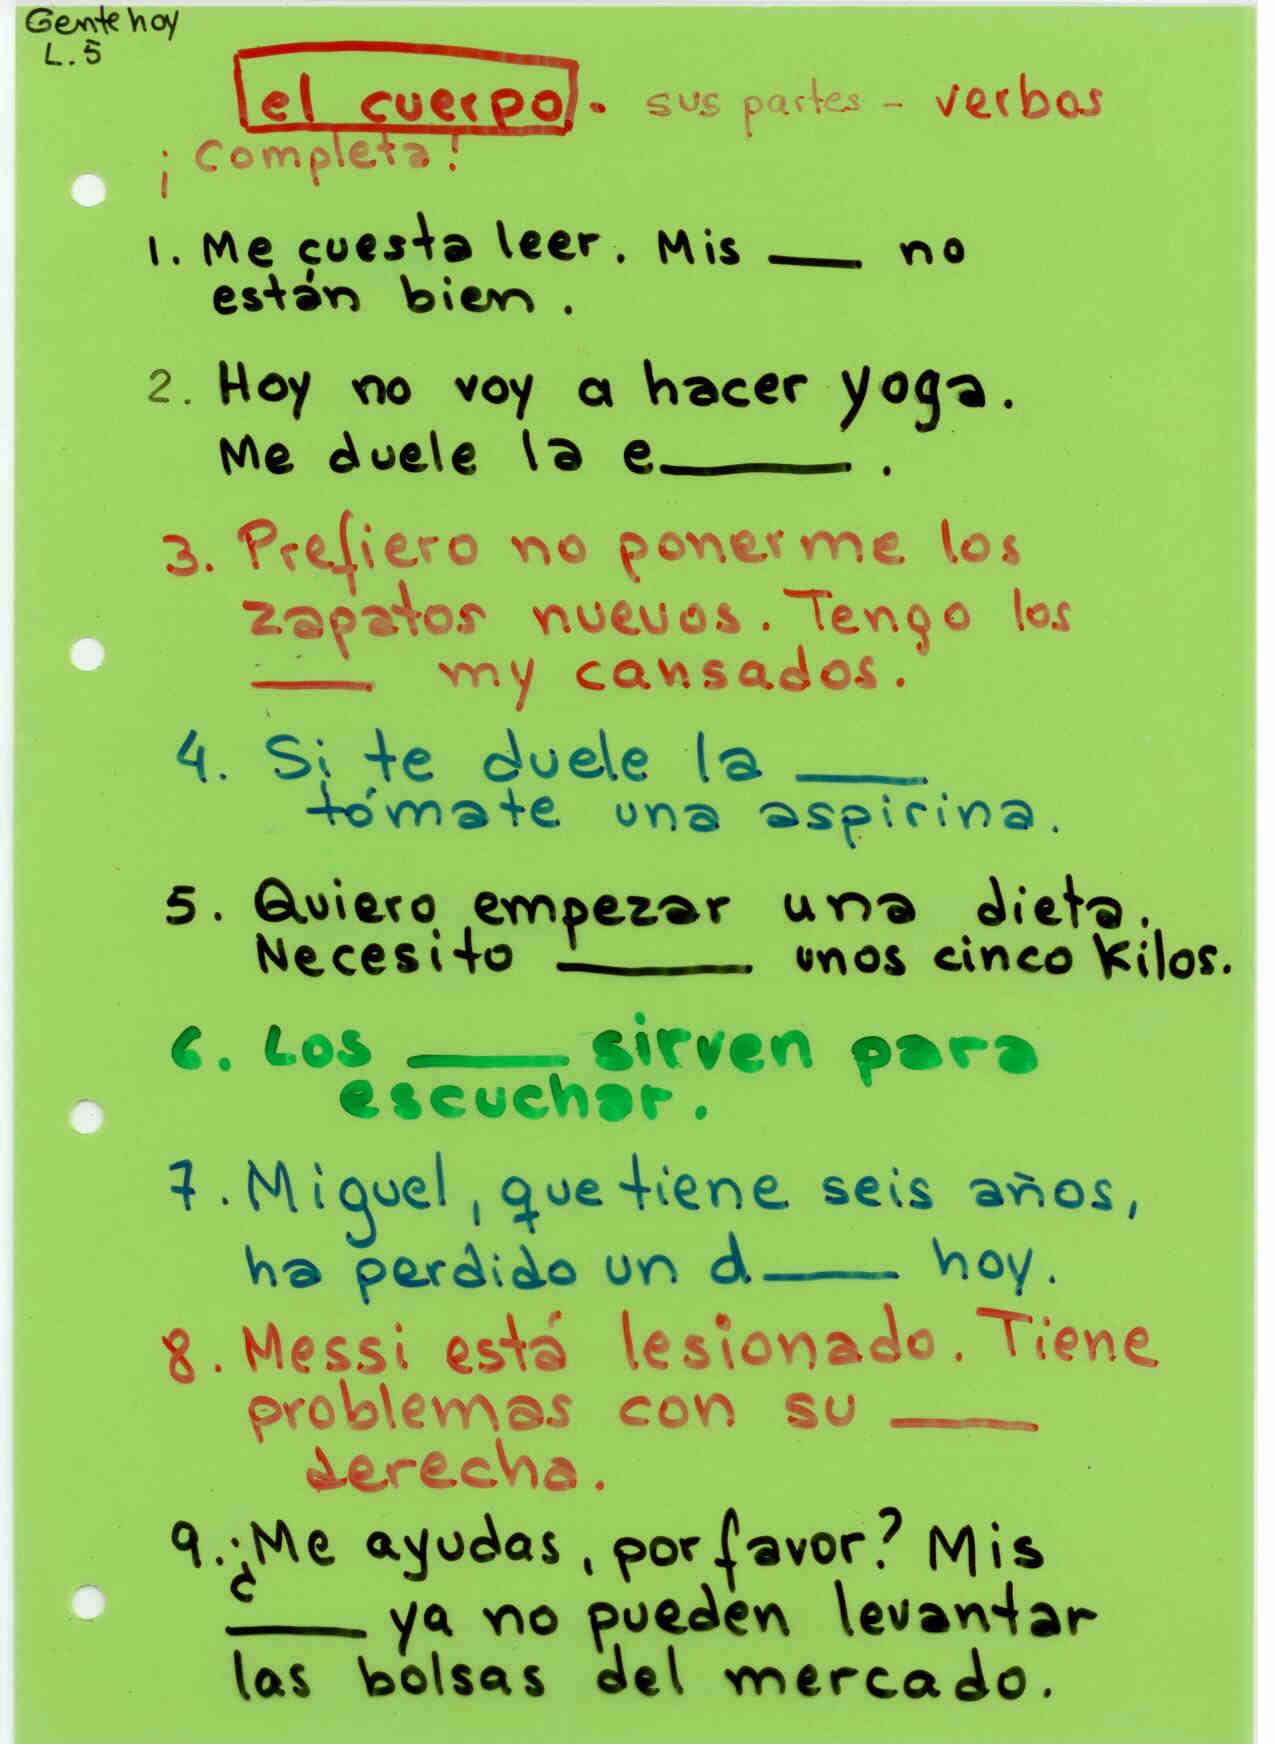 Gente hoy
L. 5
el cuerpo. sus partes - verbos
¡Completa!
1. Me cuesta leer. Mis ___ no
están bien.
2. Hoy no voy a hacer yoga.
Me duele la e______.
3. Prefiero no ponerme los
zapatos nuevos. Tengo los
____ my cansados.
4. Si te duele la ____
tómate una aspirina.
5. Quiero empezar una dieta.
Necesito ______ unos cinco kilos.
6. Los _____ sirven para
escuchar.
7. Miguel, que tiene seis años,
ha perdido un d____ hoy.
8. Messi está lesionado. Tiene
problemas con su _____
derecha.
9. ¿Me ayudas, por favor? Mis
_____ ya no pueden levantar
las bolsas del mercado.